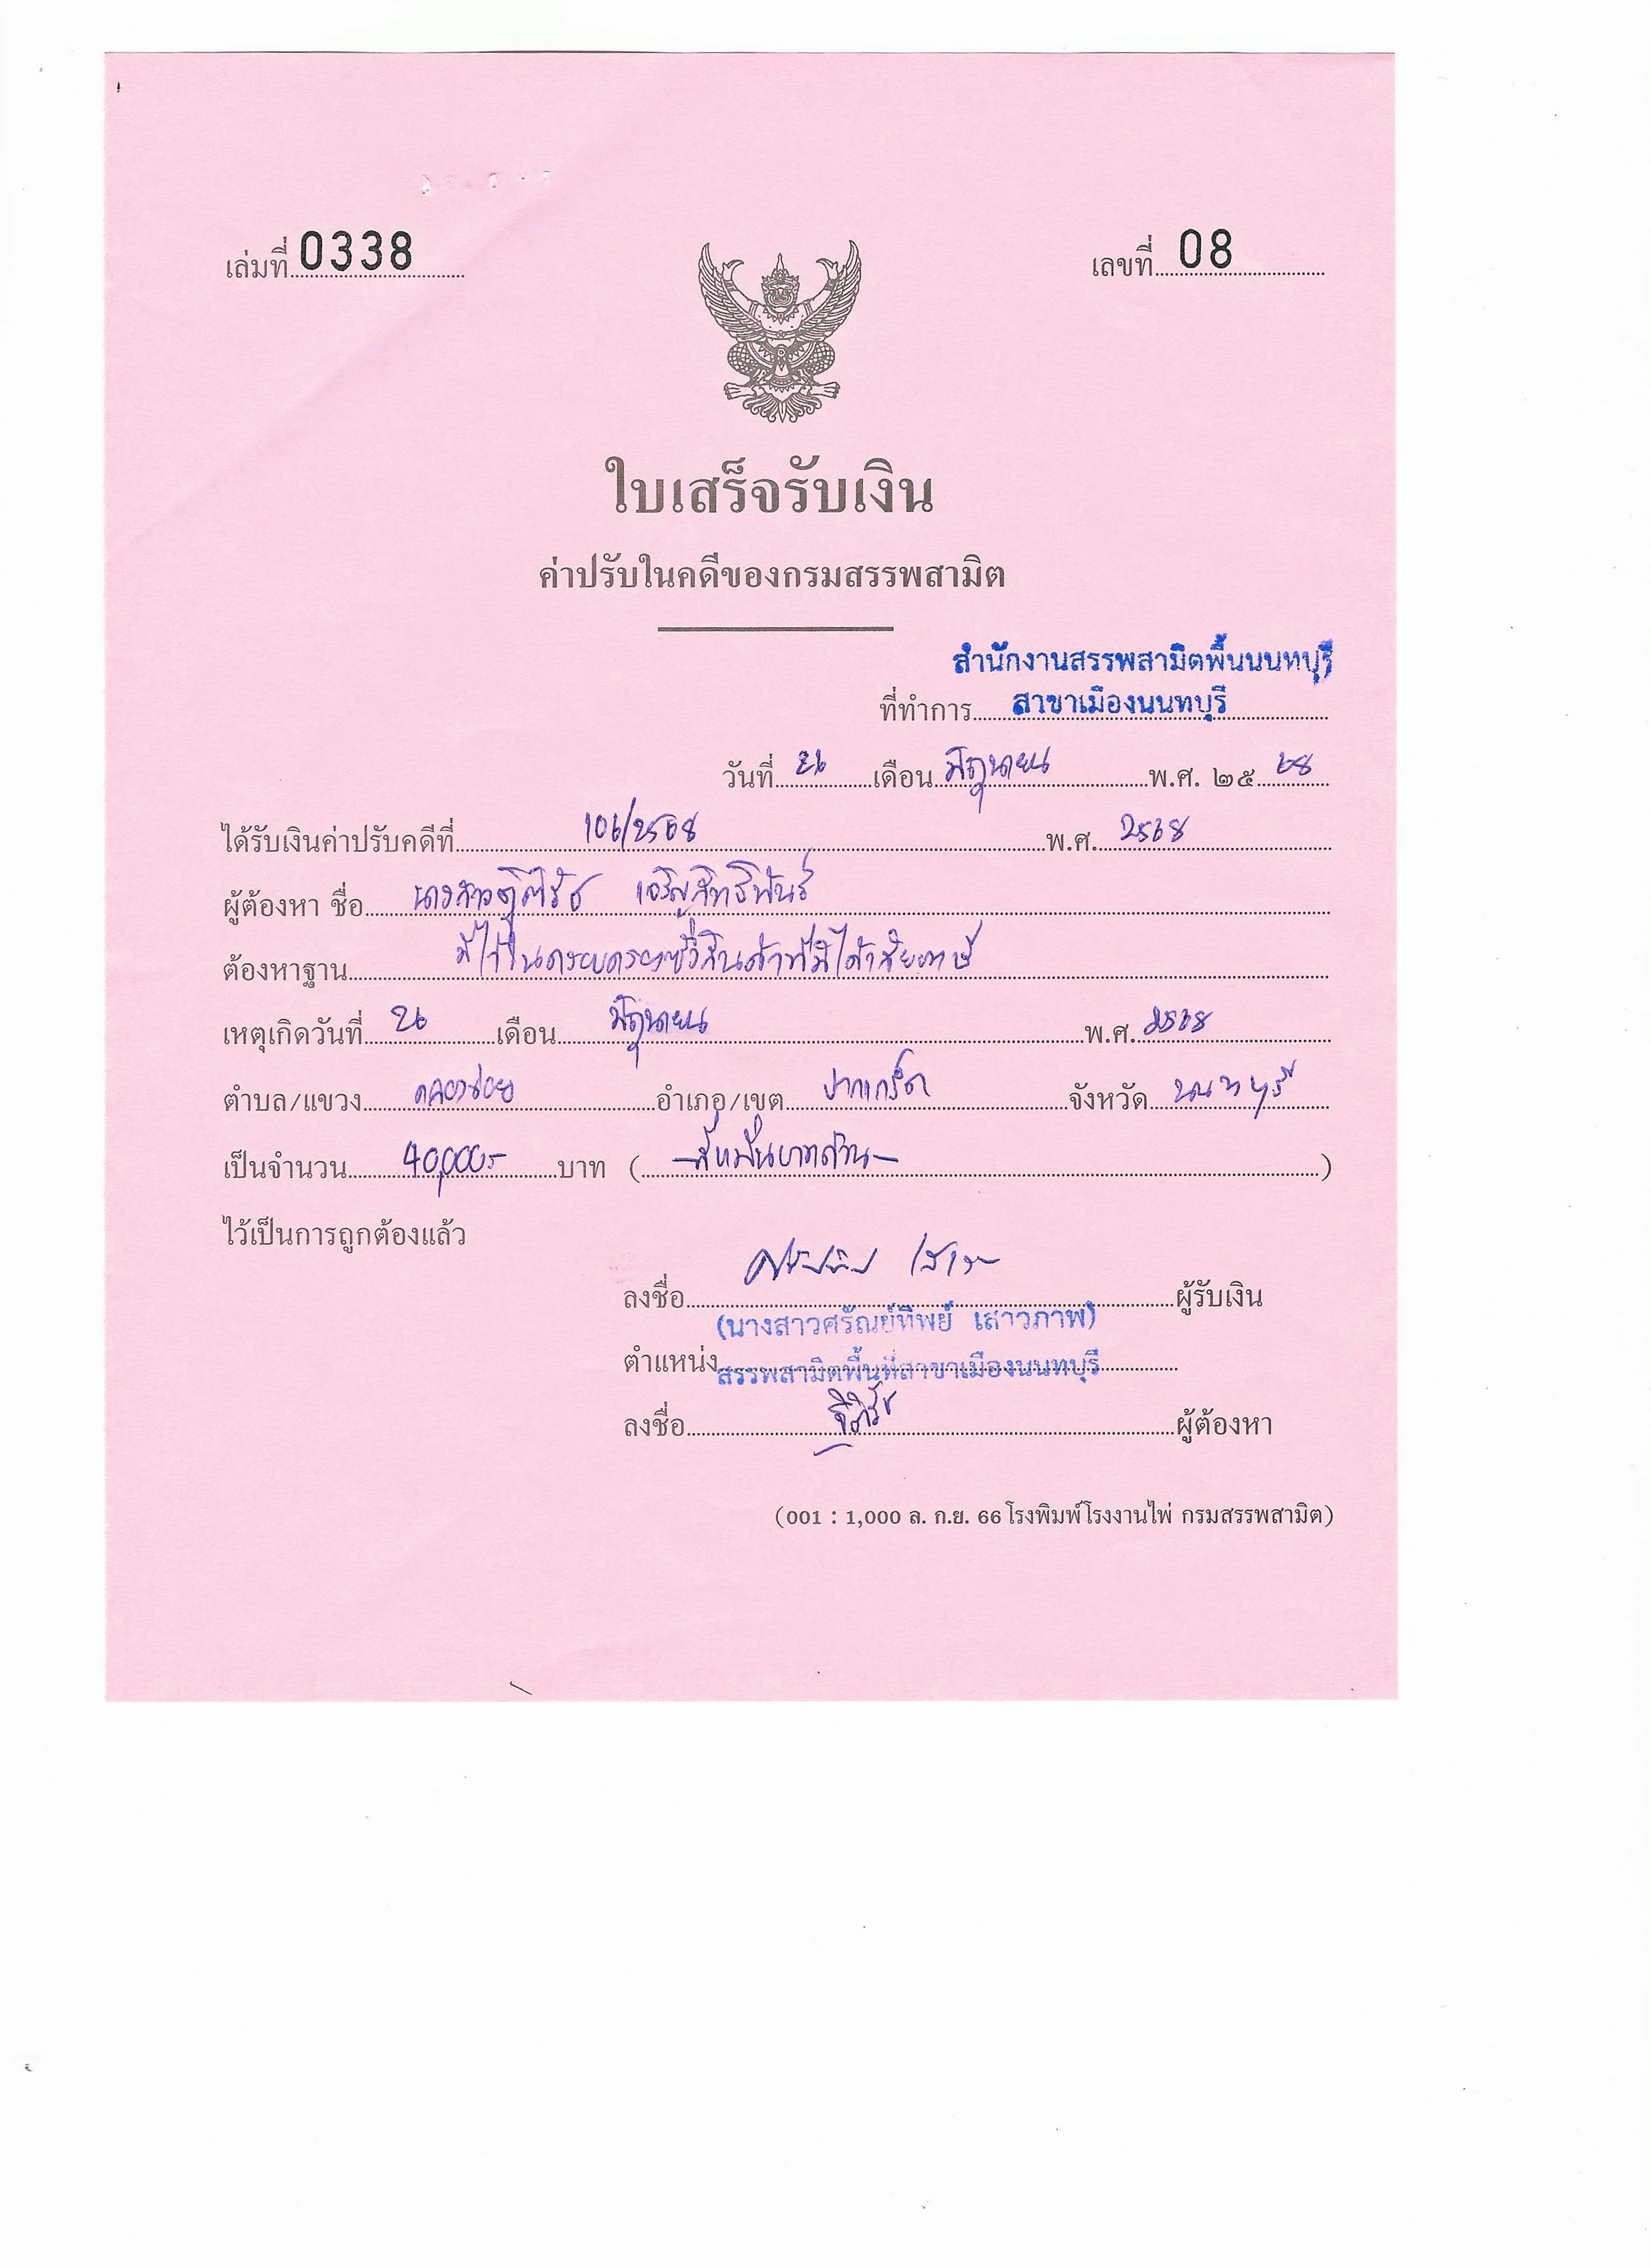 เล่มที่ 0338
เลขที่ 08
ใบเสร็จรับเงิน
ค่าปรับในคดีของกรมสรรพสามิต
สำนักงานสรรพสามิตพื้นนนทบุรี
ที่ทำการ สาขาเมืองนนทบุรี
วันที่ 26 เดือน มิถุนายน พ.ศ. ๒๕ 68
ได้รับเงินค่าปรับคดีที่ 106/2568 พ.ศ. 2568
ผู้ต้องหา ชื่อ นางสาวฐิติรัช เจริญสิทธิพันธ์
ต้องหาฐาน มีไว้ในครอบครองซึ่งสินค้าที่มิได้เสียภาษี
เหตุเกิดวันที่ 26 เดือน มิถุนายน พ.ศ. 2568
ตำบล/แขวง คลองข่อย อำเภอ/เขต ปากเกร็ด จังหวัด นนทบุรี
เป็นจำนวน 40,000.- บาท ( -สี่หมื่นบาทถ้วน- )
ไว้เป็นการถูกต้องแล้ว
ลงชื่อ ผู้รับเงิน
(นางสาวศรัณย์ทิพย์ เสาวภาพ)
ตำแหน่ง สรรพสามิตพื้นที่สาขาเมืองนนทบุรี
ลงชื่อ ฐิติรัช ผู้ต้องหา
(001 : 1,000 ล. ก.ย. 66 โรงพิมพ์โรงงานไพ่ กรมสรรพสามิต)